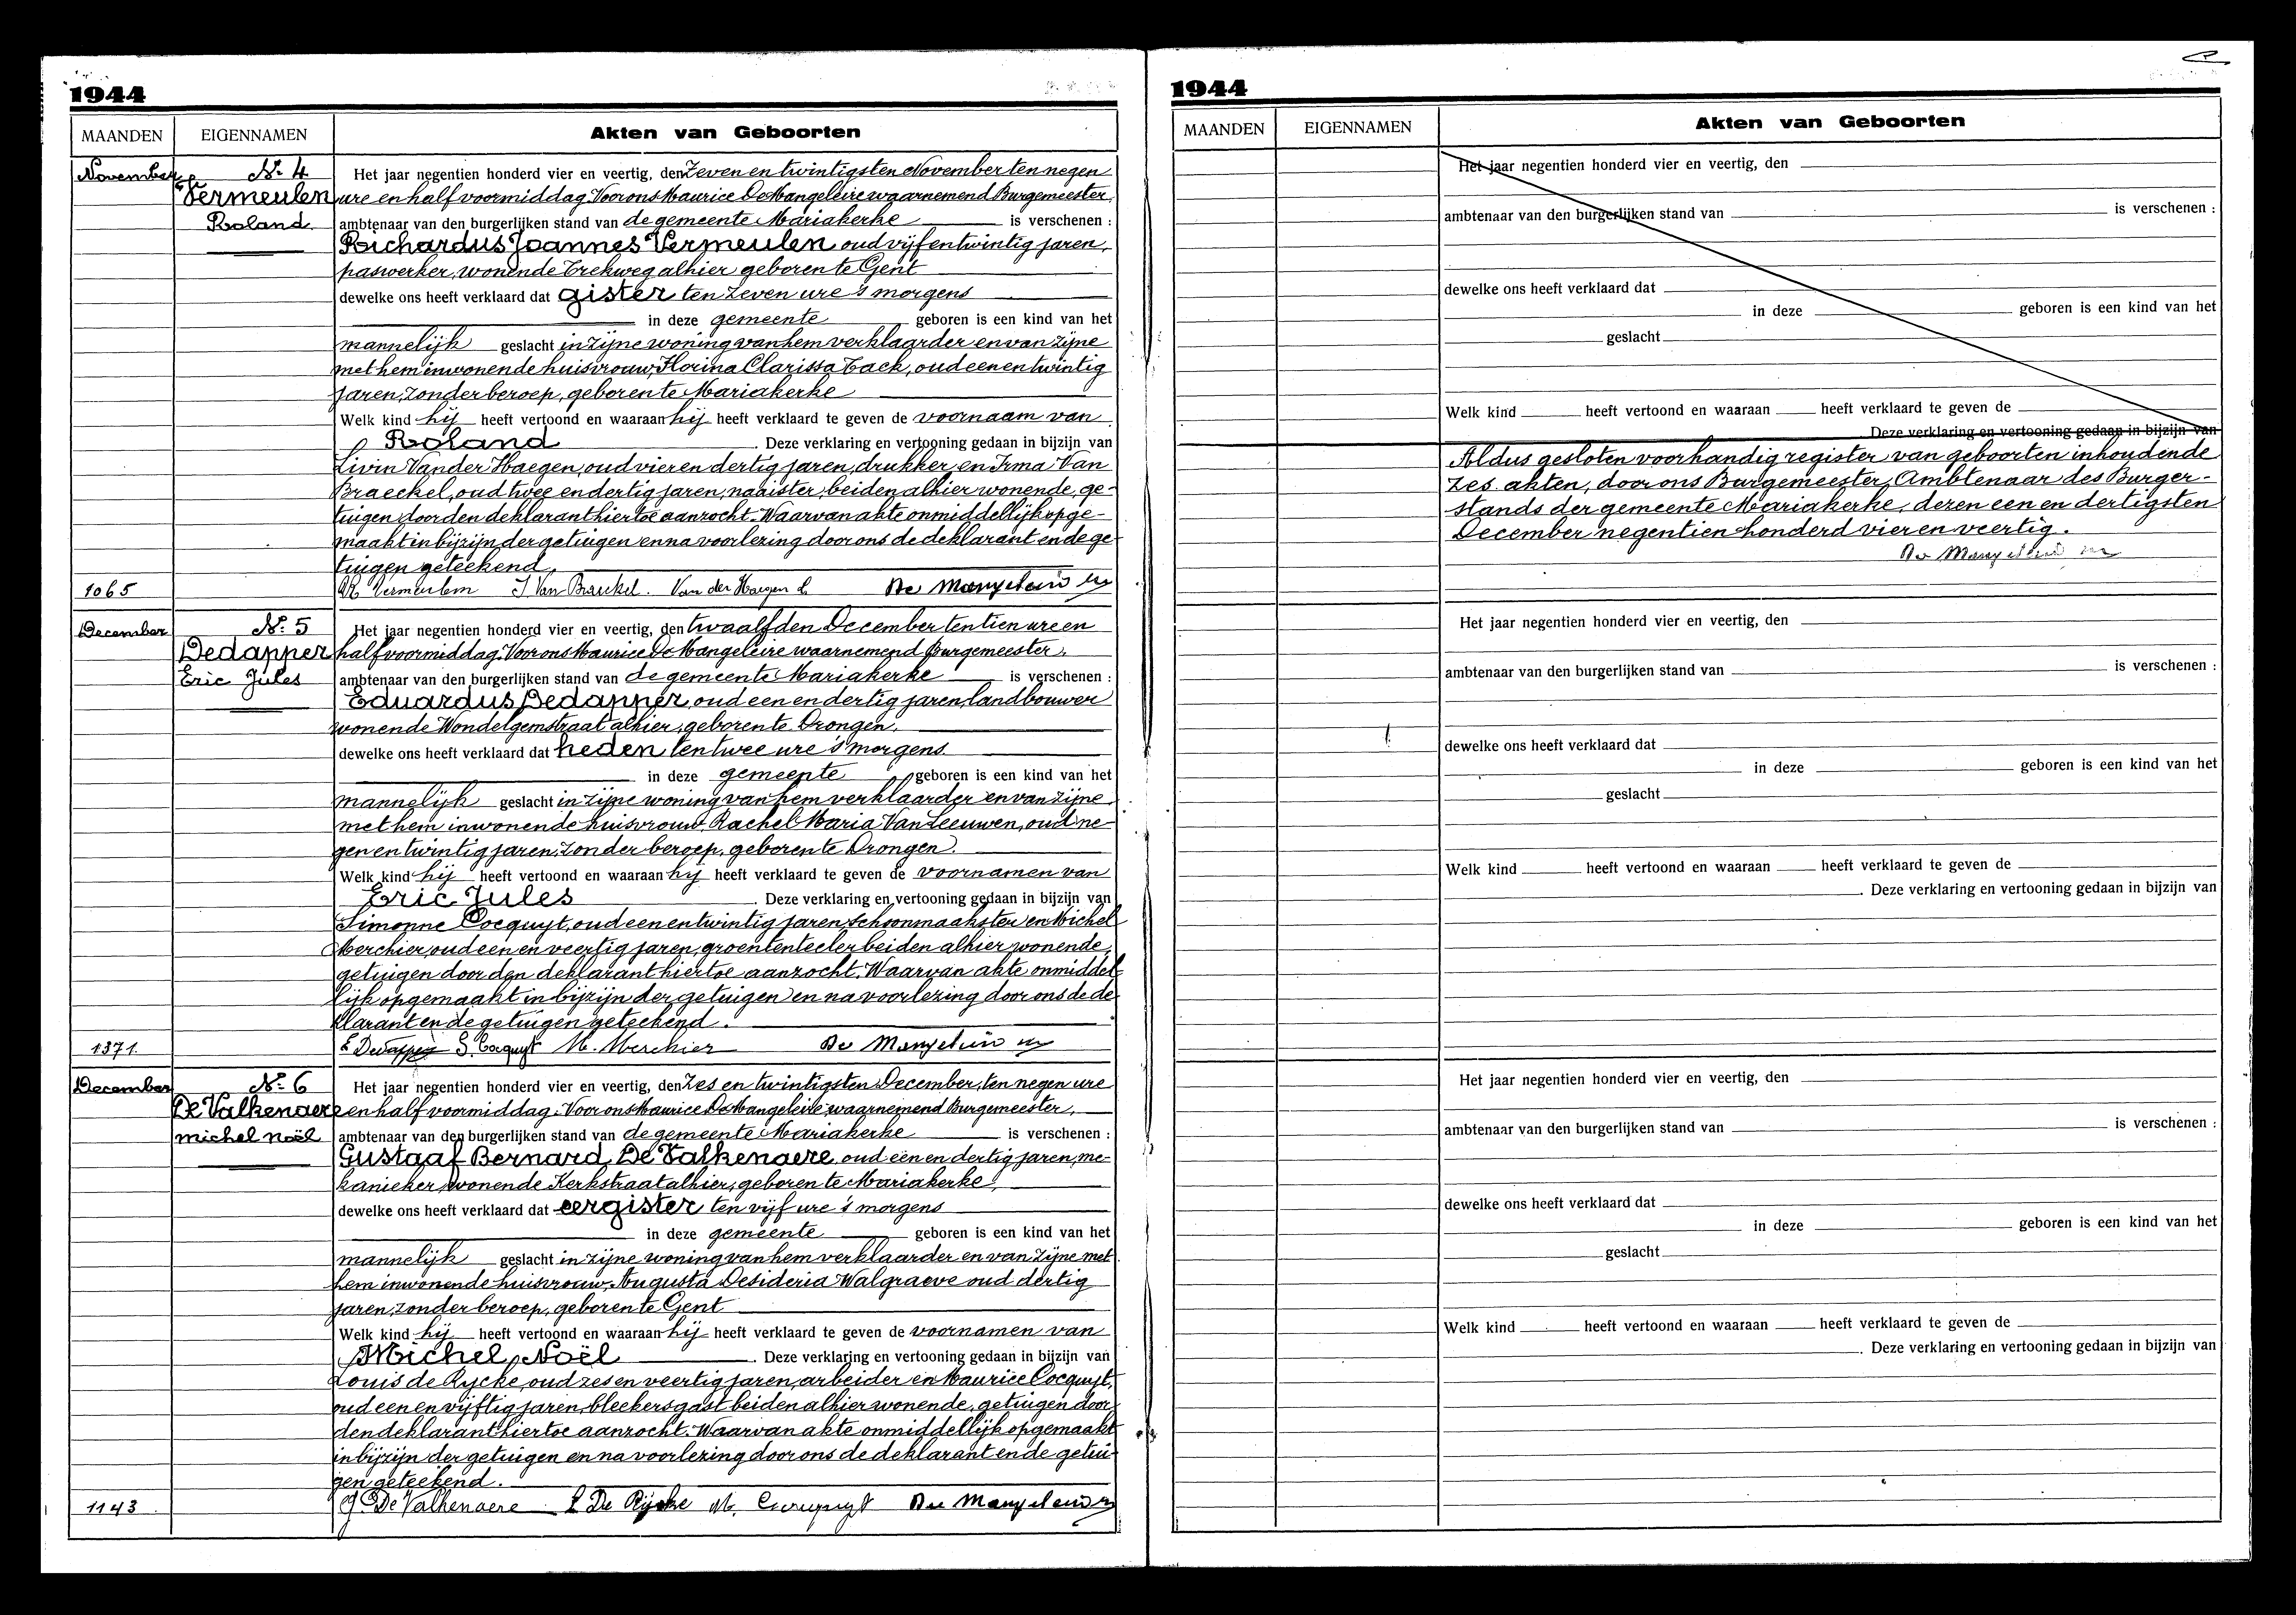 1944
MAANDEN EIGENNAMEN Akten van Geboorten
November Nr 4 Het jaar negentien honderd vier en veertig, den zeven en twintigsten November ten negen
Vermeulen ure en half voormiddag. Voor ons Maurice De Mangeleire waarnemend Burgemeester,
Roland ambtenaar van den burgerlijken stand van de gemeente Mariakerke is verschenen :
Richardus Joannes Vermeulen oud vijf en twintig jaren,
paswerker, wonende Trekweg alhier geboren te Gent
dewelke ons heeft verklaard dat gister ten zeven ure 's morgens
in deze gemeente geboren is een kind van het
mannelijk geslacht in zijne woning van hem verklaarder en van zijne
met hem inwonende huisvrouw, Florina Clarissa Tack, oud een en twintig
jaren, zonder beroep, geboren te Mariakerke
Welk kind hij heeft vertoond en waaraan hij heeft verklaard te geven de voornaam van
Roland . Deze verklaring en vertooning gedaan in bijzijn van
Livin Vander Haegen, oud vier en dertig jaren, drukker, en Irma Van
Braeckel, oud twee en dertig jaren, naaister, beiden alhier wonende, ge-
tuigen door den deklarant hiertoe aanzocht. Waarvan akte onmiddellijk opge-
maakt in bijzijn der getuigen en na voorlezing door ons de deklarant en de ge-
tuigen geteekend.
1065 R Vermeulen I Van Braeckel. Van der Haegen L De Mangeleire M
December Nr 5 Het jaar negentien honderd vier en veertig, den twaalfden December ten tien ure en
Dedapper half voormiddag. Voor ons Maurice De Mangeleire waarnemend Burgemeester,
Eric Jules ambtenaar van den burgerlijken stand van de gemeente Mariakerke is verschenen :
Eduardus Dedapper, oud een en dertig jaren, landbouwer
wonende Wondelgemstraat alhier, geboren te Drongen,
dewelke ons heeft verklaard dat heden ten twee ure 's morgens
in deze gemeente geboren is een kind van het
mannelijk geslacht in zijne woning van hem verklaarder en van zijne
met hem inwonende huisvrouw, Rachel Maria Van Leeuwen, oud ne-
gen en twintig jaren, zonder beroep, geboren te Drongen.
Welk kind hij heeft vertoond en waaraan hij heeft verklaard te geven de voornamen van
Eric Jules . Deze verklaring en vertooning gedaan in bijzijn van
Simonne Cocquyt, oud een en twintig jaren, schoonmaakster en Michel
Merchier, oud een en veertig jaren, groententeeler beiden alhier wonende,
getuigen door den deklarant hiertoe aanzocht. Waarvan akte onmiddel-
lijk opgemaakt in bijzijn der getuigen en na voorlezing door ons de de-
klarant en de getuigen geteekend.
1371. E Dedapper S. Cocquyt M. Merchier De Mangeleire M
December Nr 6 Het jaar negentien honderd vier en veertig, den zes en twintigsten December, ten negen ure
De Valkenaere en half voormiddag. Voor ons Maurice De Mangeleire waarnemend Burgemeester,
Michel Noël ambtenaar van den burgerlijken stand van de gemeente Mariakerke is verschenen :
Gustaaf Bernard De Valkenaere, oud een en dertig jaren, me-
kanieker, wonende Kerkstraat alhier, geboren te Mariakerke,
dewelke ons heeft verklaard dat eergister ten vijf ure 's morgens
in deze gemeente geboren is een kind van het
mannelijk geslacht in zijne woning van hem verklaarder en van zijne met
hem inwonende huisvrouw, Augusta Desideria Walgraeve oud dertig
jaren, zonder beroep, geboren te Gent
Welk kind hij heeft vertoond en waaraan hij heeft verklaard te geven de voornamen van
Michel, Noël . Deze verklaring en vertooning gedaan in bijzijn van
Louis de Rycke, oud zes en veertig jaren, arbeider en Maurice Cocquyt,
oud een en vijftig jaren, bleekersgast beiden alhier wonende, getuigen door
den deklarant hiertoe aanzocht. Waarvan akte onmiddellijk opgemaakt
in bijzijn der getuigen en na voorlezing door ons de deklarant en de getui-
gen geteekend.
1143 G De Valkenaere L De Rijcke M. Cocquyt De Mangeleire M
1944
MAANDEN EIGENNAMEN Akten van Geboorten
Het jaar negentien honderd vier en veertig, den
ambtenaar van den burgerlijken stand van is verschenen :
dewelke ons heeft verklaard dat
in deze geboren is een kind van het
geslacht
Welk kind heeft vertoond en waaraan heeft verklaard te geven de
Deze verklaring en vertooning gedaan in bijzijn van
Aldus gesloten voorhandig register van geboorten inhoudende
zes akten, door ons Burgemeester, Ambtenaar des Burger-
stands der gemeente Mariakerke, dezen een en dertigsten
December negentien honderd vier en veertig.
De Mangeleire M
Het jaar negentien honderd vier en veertig, den
ambtenaar van den burgerlijken stand van is verschenen :
dewelke ons heeft verklaard dat
in deze geboren is een kind van het
geslacht
Welk kind heeft vertoond en waaraan heeft verklaard te geven de
. Deze verklaring en vertooning gedaan in bijzijn van
Het jaar negentien honderd vier en veertig, den
ambtenaar van den burgerlijken stand van is verschenen :
dewelke ons heeft verklaard dat
in deze geboren is een kind van het
geslacht
Welk kind heeft vertoond en waaraan heeft verklaard te geven de
. Deze verklaring en vertooning gedaan in bijzijn van